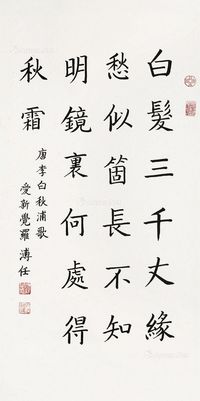 白髮三千丈緣
愁似箇長不知
明鏡裏何處得
秋霜
唐李白秋浦歌
愛新覺羅 溥任